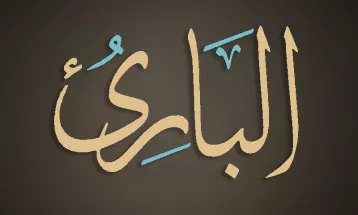 البَارِئُ